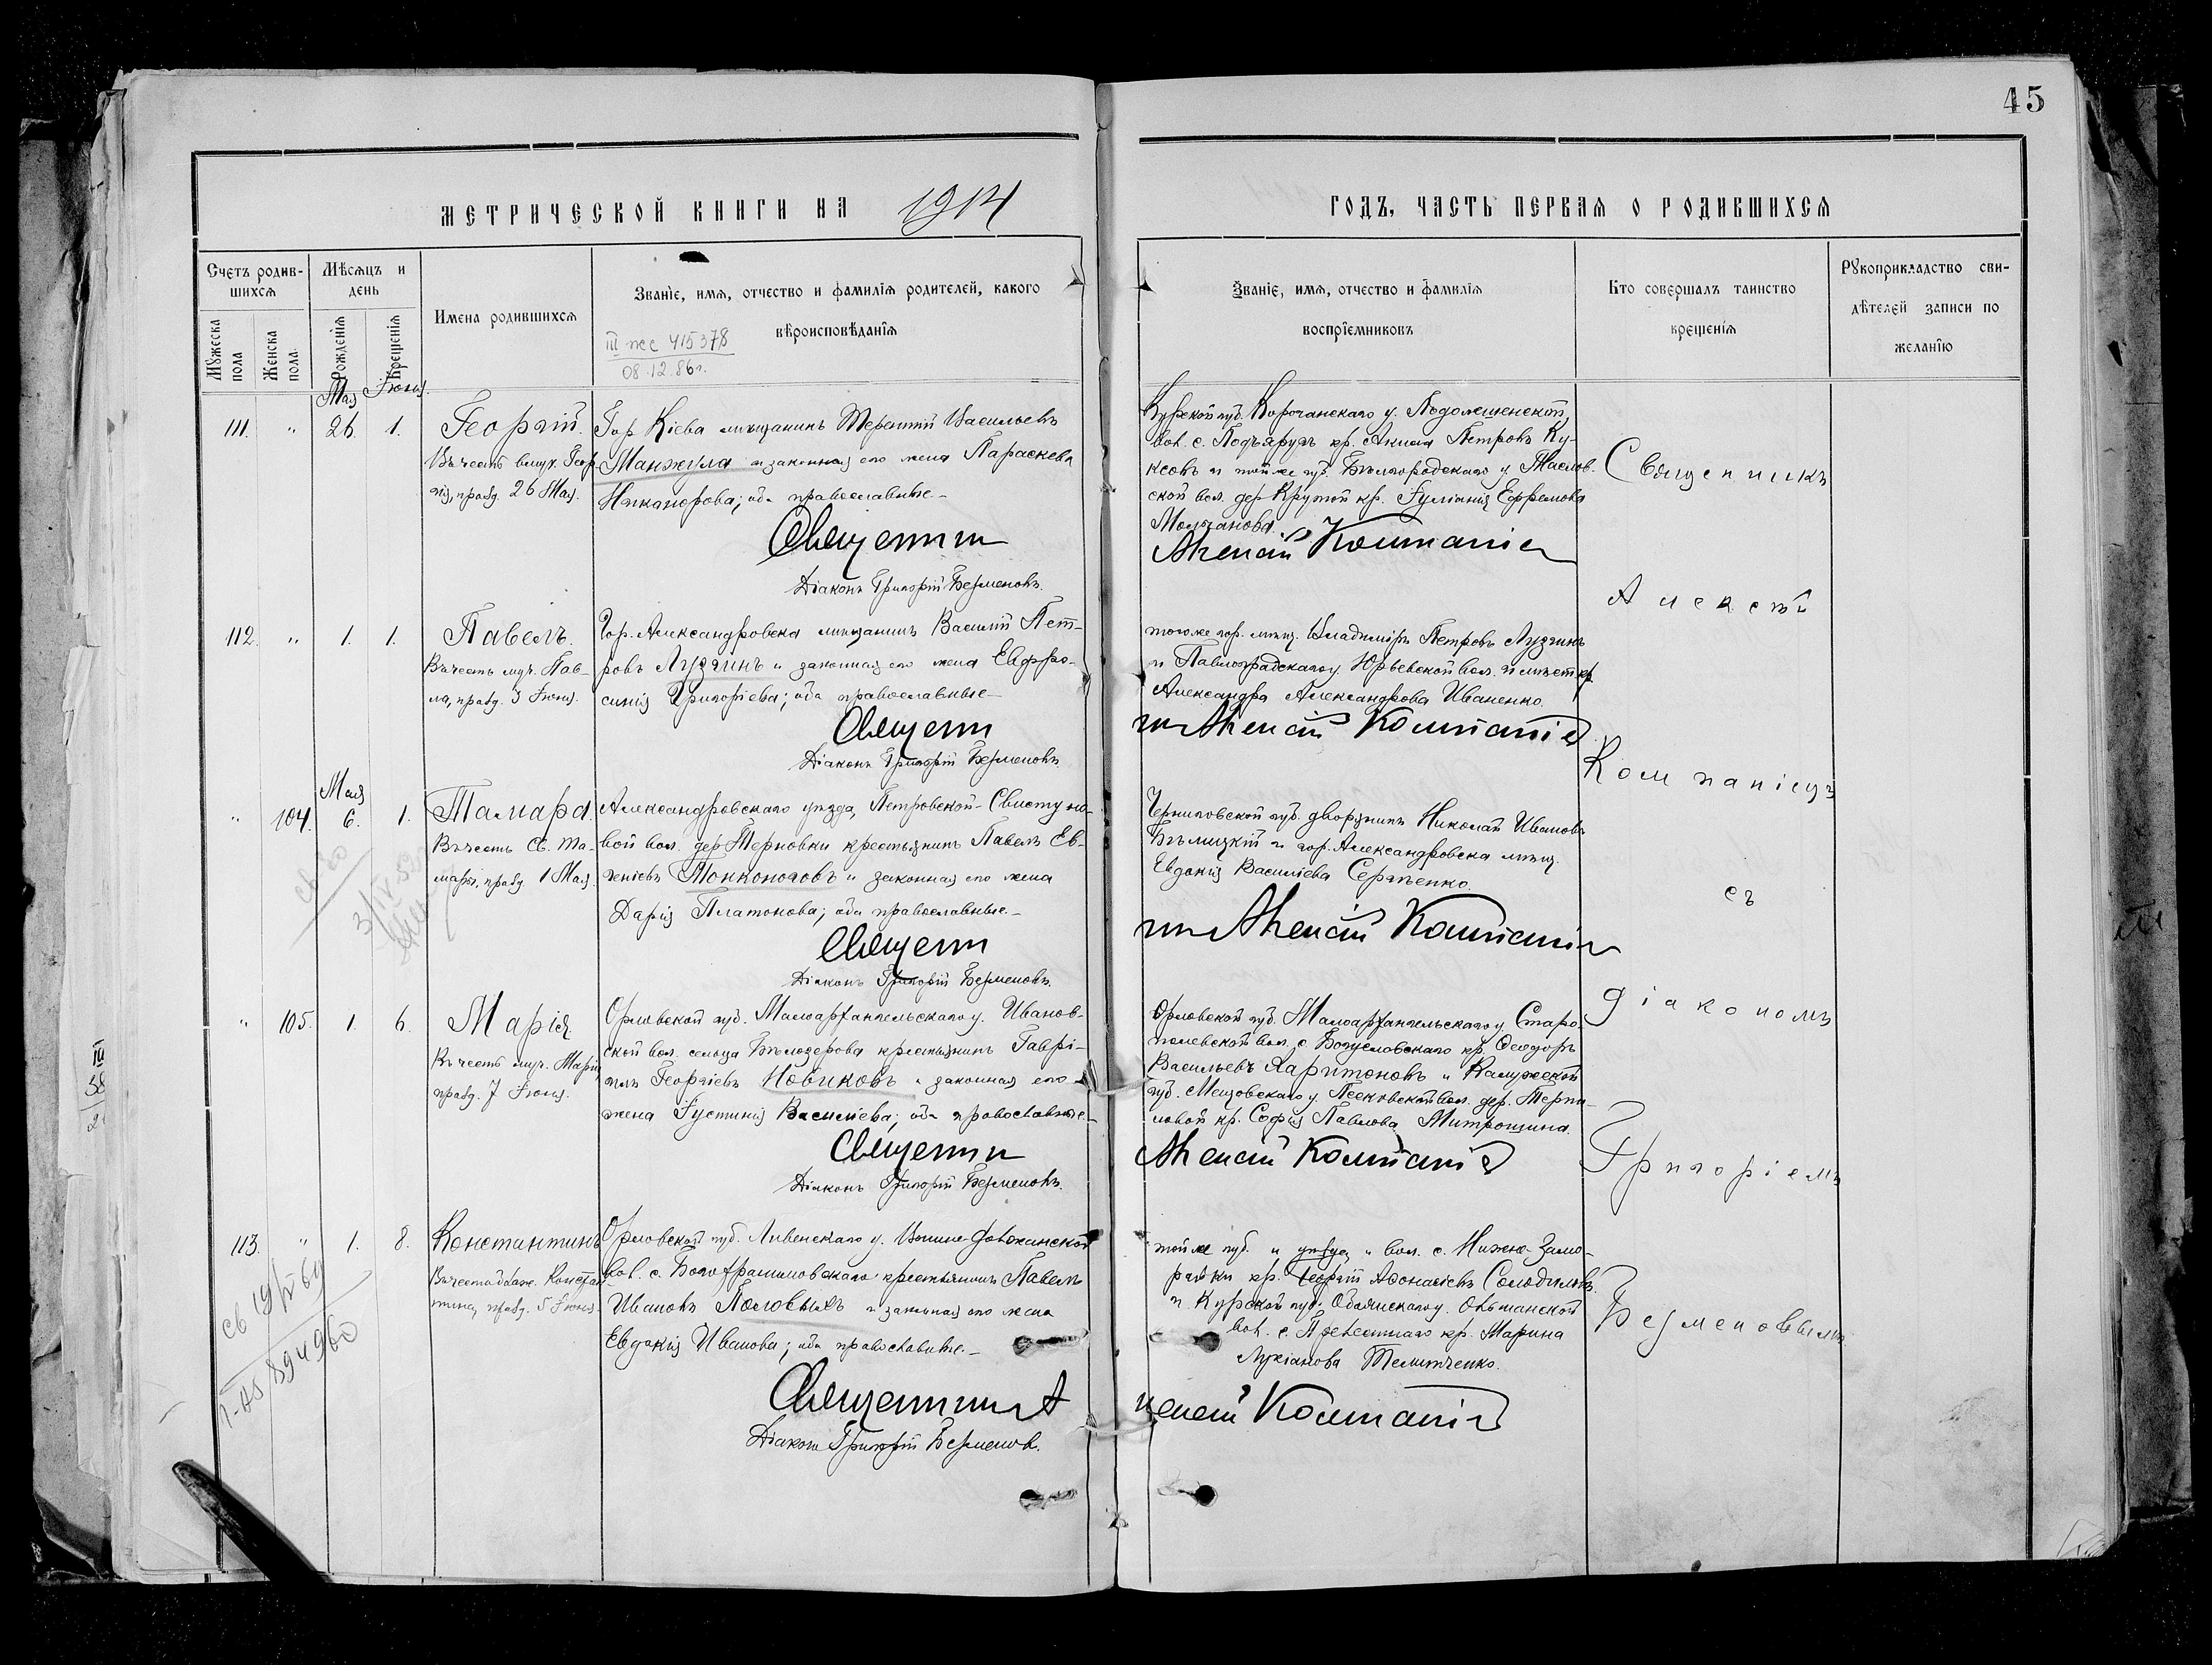 45
МЕТРИЧЕСКОЙ КНИГИ НА 1914
ГОДЪ, ЧАСТЬ ПЕРВАЯ О РОДИВШИХСЯ
Счетъ родив-
шихся
Мѣсяцъ и
день
Мужеска
пола
Женска
пола.
Рожденія
Крещенія
Имена родившихся
Званіе, имя, отчество и фамилія родителей, какого
вѣроисповѣданія
III пес 415378
08.12.86г.
Званіе, имя, отчество и фамилія
воспріемниковъ
Кто совершалъ таинство
крещенія
Рукоприкладство сви-
дѣтелей записи по
желанію
Мая Іюня
111. " 26. 1.
Георгій.
Въ честь вмуч. Геор-
гія, празд. 26 Мая.
Гор. Кіева мѣщанинъ Терентій Васильевъ
Манжула и законная его жена Параскева
Никанорова; оба православные
Священни
Діаконъ Григорій Безменовъ.
Курской губ. Корочанскаго у.
вол. с. Подъяругъ кр. Петровъ Ку-
ксовъ и той же губ. Бѣлгородскаго у. Маслов-
ской вол. дер. Крутой кр. Іуліанія Ефремова
Молчанова.
Алексій Компаніе
112. " 1. 1.
Павелъ.
Въ честь муч. Пав-
ла, празд. 3 Іюня.
Гор. Александровска мѣщанинъ Василій Пет-
ровъ Лузгинъ и законная его жена Евфро-
синія Григоріева; оба православные
Священн
Діаконъ Григорій Безменовъ
того же гор. мѣщ. Владиміръ Петровъ Лузгинъ
и Павлоградскаго у. Юрьевской вол. и мѣст. кр.
Александра Александрова Иваненко.
Алексій Компаніе
Мая
" 104. 6. 1.
Тамара.
Въ честь Св. Та-
мары, празд. 1 Мая.
Александровскаго уѣзда, Петровской-Свистуно-
вой вол. дер. Терновки крестьянинъ Павелъ Ев-
геніевъ Тонконоговъ и законная его жена
Дарія Платонова; оба православные
Священн
Діаконъ Григорій Безменовъ.
Черниговской губ. дворянинъ Николай Ивановъ
Бѣлицкій и гор. Александровска мѣщ.
Евдокія Василіева Сергѣенко.
Алексій Компаніе
" 105. 1. 6.
Марія
Въ честь муч. Маріи,
празд. 7 Іюня.
Орловской губ. Малоархангельскаго у. Иванов-
ской вол. сельца Бѣлозерова крестьянинъ Гаврі-
илъ Георгіевъ Новиковъ и законная его
жена Іустинія Василіева; оба православные
Священни
Діаконъ Григорій Безменовъ.
Орловской губ. Малоархангельскаго у. Старо-
вол. с. Богуславскаго кр. Ѳеодоръ
Васильевъ Харитоновъ и Калужской
губ. Мещовскаго у. вол. дер.
кр. Софія Павлова Митрошина.
Алексій Компаніе
113. " 1. 8.
Константинъ
Въ честь Константина,
празд. 5 Іюня.
Орловской губ. Ливенскаго у.
вол. с. крестьянинъ Павелъ
Ивановъ Половыхъ и законная его жена
Евдокія Иванова; оба православные.
Священник А
Діаконъ Григорій Безменов.
той же губ. и уѣзда и вол. с. Нижне-
кр. Георгій Аѳонасіевъ Солодиловъ
и Курской губ. Обоянскаго у.
вол. с. кр. Марина
Лукіанова Телитченко.
лексій Компаніе
Священникъ
Алексѣй
Компаніец
съ
діакономъ
Григоріемъ
Безменовымъ